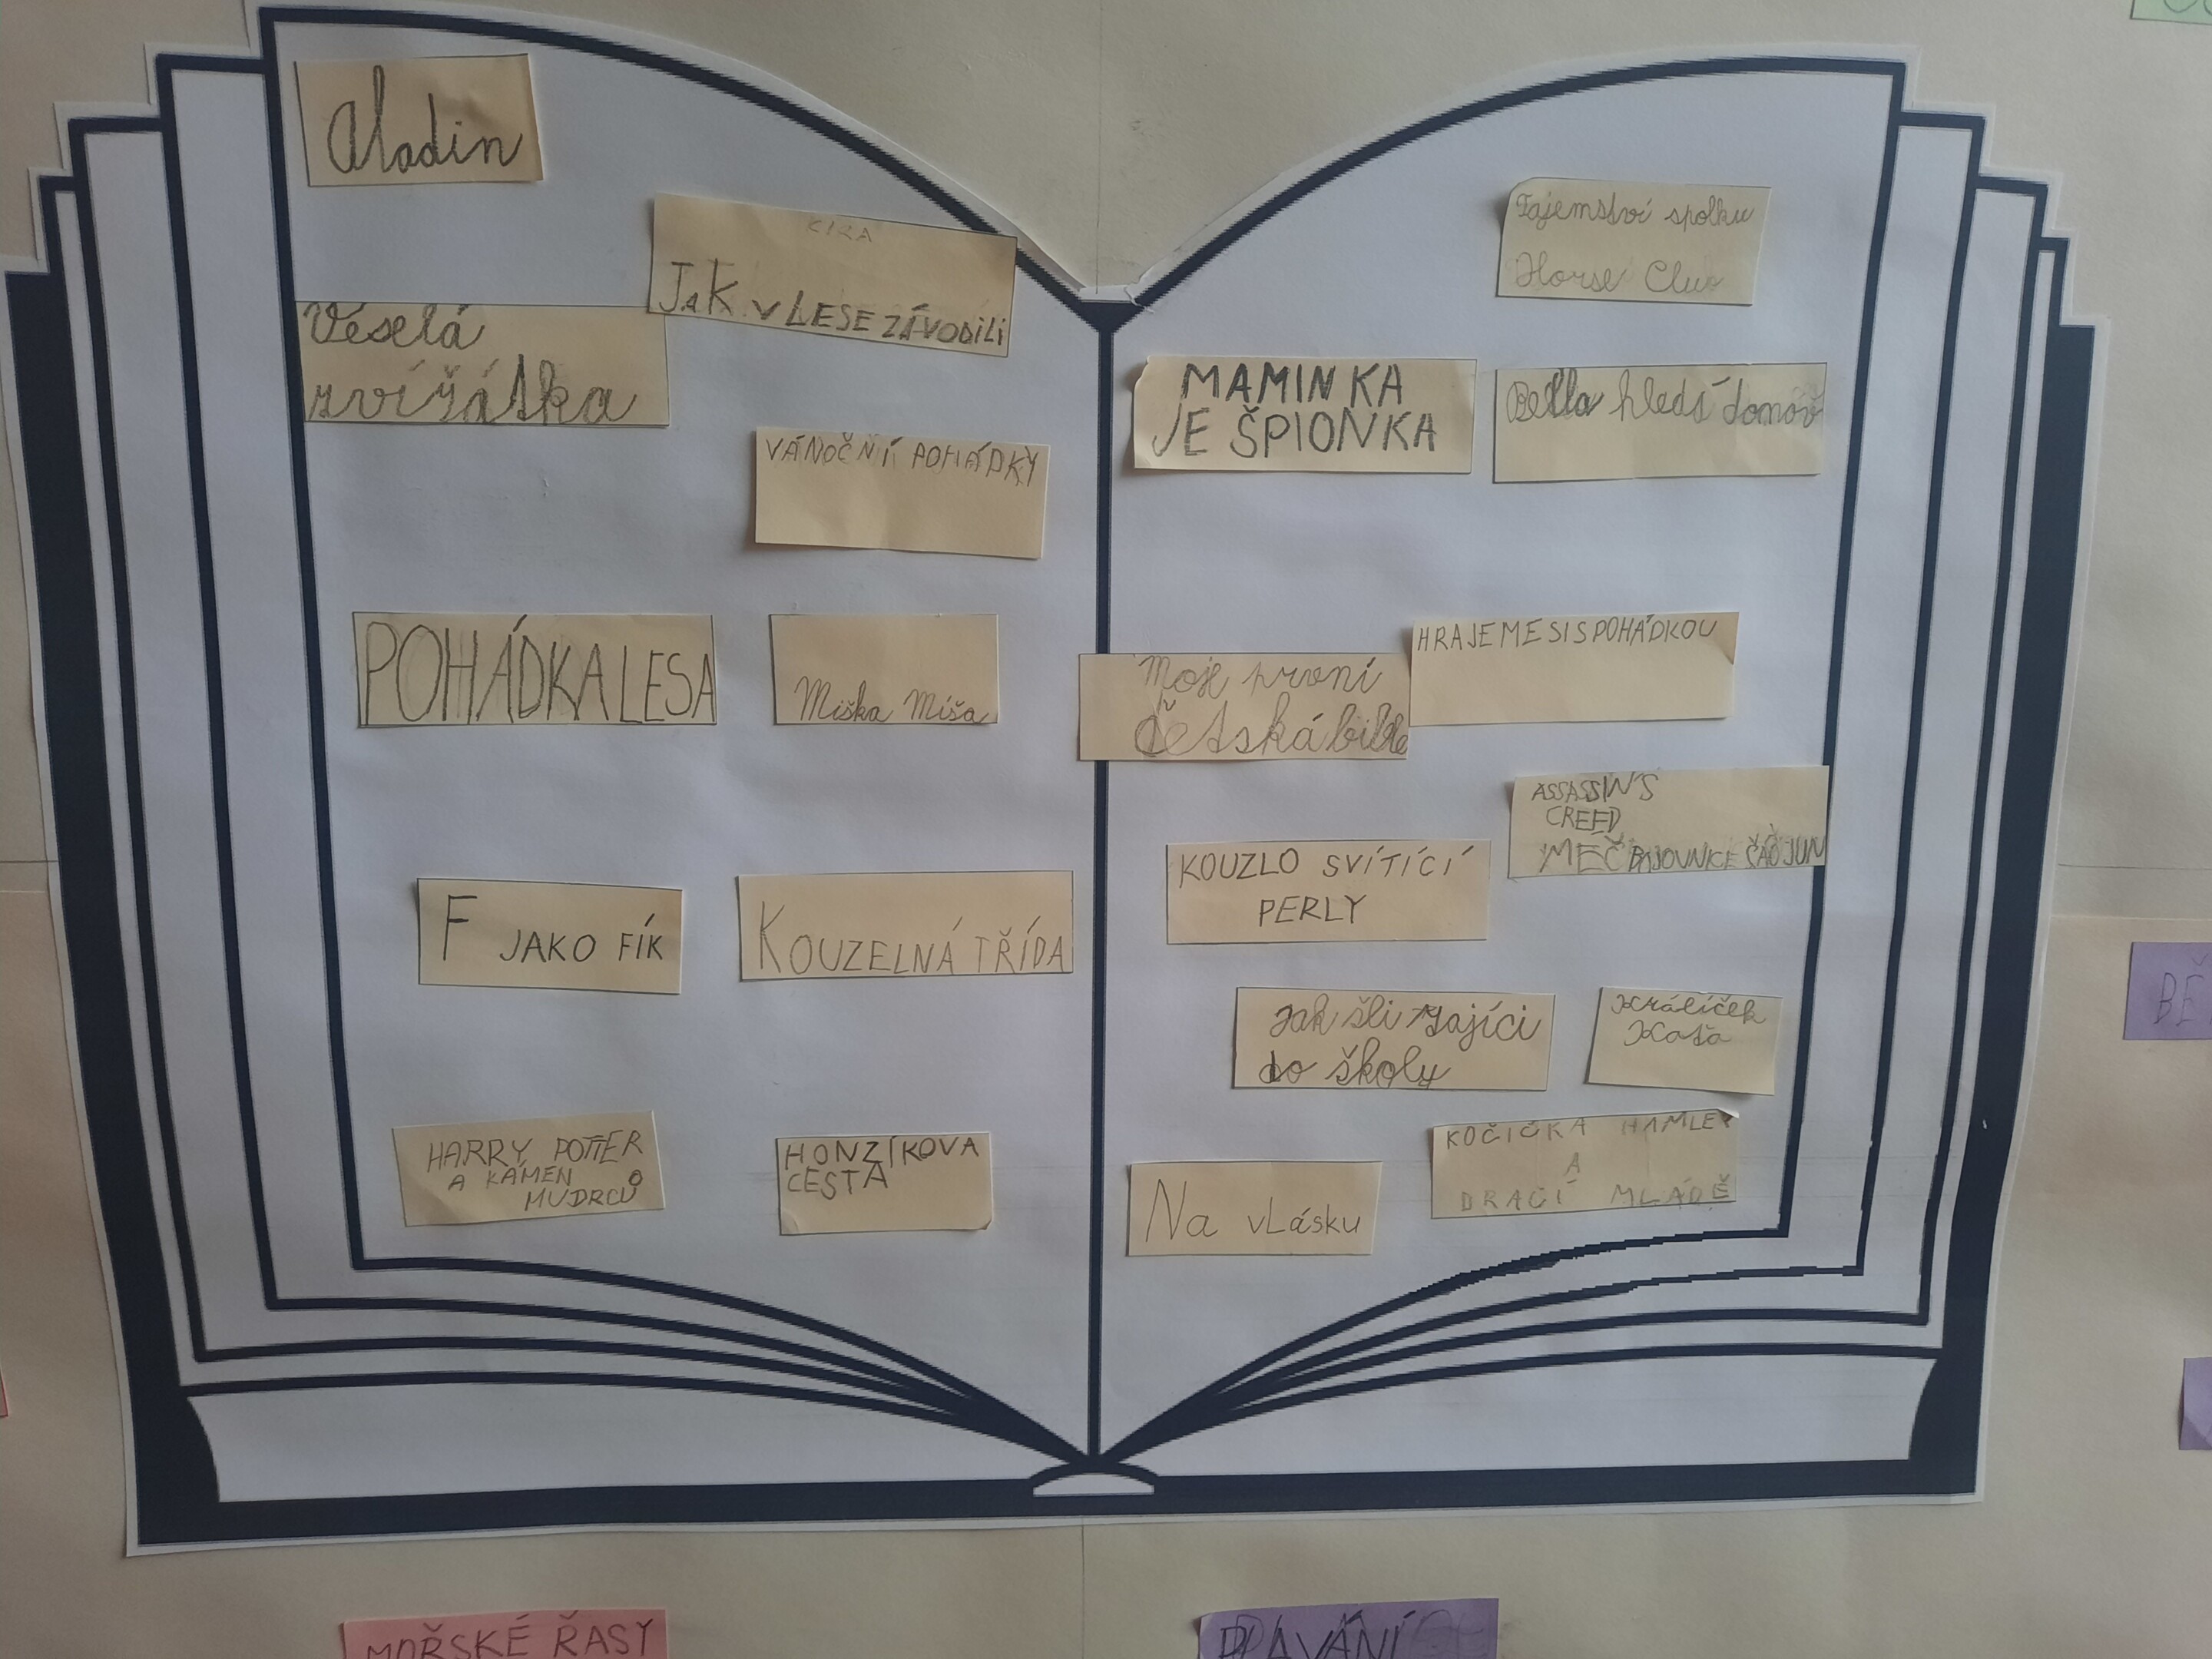 Aladin
KIRA
JaK v LESE ZÁVODILI
Veselá
zvířátka
VÁNOČNÍ POHÁDKY
POHÁDKA LESA
Miška Míša
F JAKO FÍK
KOUZELNÁ TŘÍDA
HARRY POTTER
A KÁMEN
MUDRCŮ
HONZÍKOVA
CESTA
Tajemství spolku
Horse Club
MAMINKA
JE ŠPIONKA
Bella hledá domov
Moje první
dětská bible
HRAJEME SI S POHÁDKOU
ASSASSIN'S
CREED
MEČ BOJOVNICE ČAO JUN
KOUZLO SVÍTÍCÍ
PERLY
Jak šli zajíci
do školy
Králíček
Kaša
KOČIČKA HAMLET
A
DRAČÍ MLÁDĚ
Na vLásku
BĚ
MOŘSKÉ ŘASY
PLAVÁNÍ